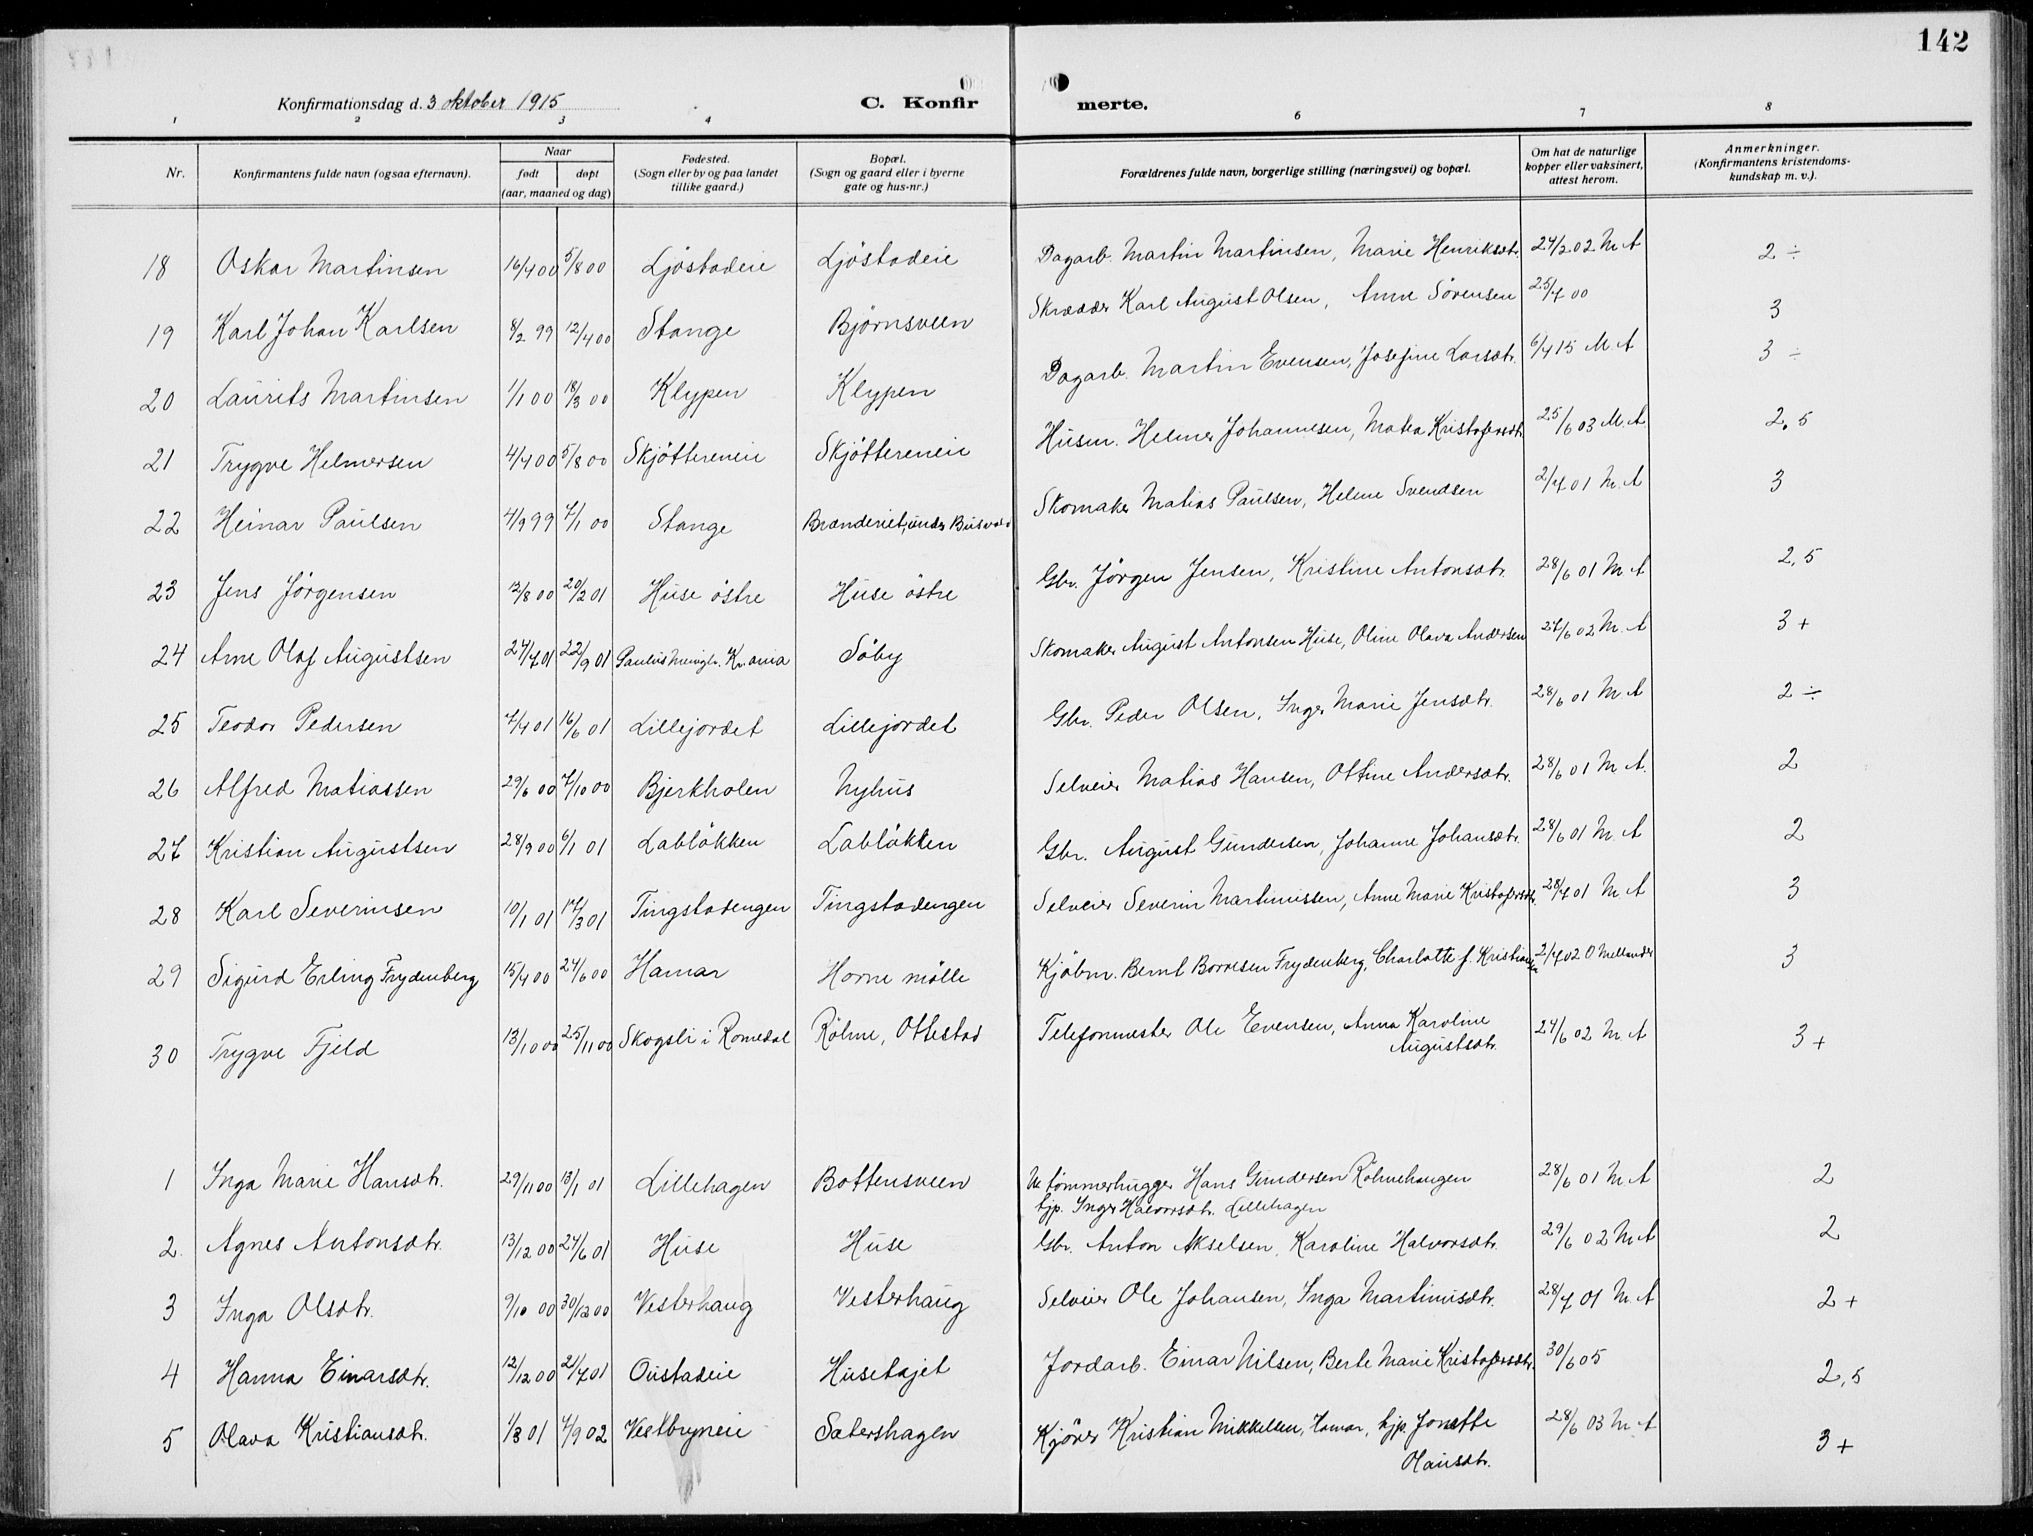 142
Konfirmationsdag d. 3 oktober 1915
C. Konfir merte.
1 2 3 4 6 7 8
Nr.
Konfirmantens fulde navn (ogsaa efternavn).
Naar
født døpt
(aar, maaned og dag)
Fødested.
(Sogn eller by og paa landet
tillike gaard.)
Bopæl.
(Sogn og gaard eller i byerne
gate og hus-nr.)
Forældrenes fulde navn, borgerlige stilling (næringsvei) og bopæl.
Om hat de naturlige
kopper eller vaksinert,
attest herom.
Anmerkninger.
(Konfirmantens kristendoms-
kundskap m. v.).
18 Oskar Martinsen 16/4 00 5/8 00 Ljöstadeie Ljöstadeie Dagarb. Martin Martinsen, Marie Henriksdtr. 24/2 02 M A 2 ÷
19 Karl Johan Karlsen 8/2 99 12/4 00 Stange Björnsveen Skrædder Karl August Olsen, Anne Sörensen 25/7 00 3
20 Laurits Martinsen 1/1 00 18/3 00 Klypen Klypen Dagarb. Martin Evensen, Josefine Larsdtr. 6/4 15 M. A 3 ÷
21 Trygve Helmersen 4/4 00 5/8 00 Skjöttereneie Skjöttereneie Husm. Helmer Johannesen, Matea Kristofersdtr 25/6 03 M. A 2,5
22 Heinar Paulsen 4/9 99 7/1 00 Stange Brænderiet, under Skomaker Matias Paulsen, Helene Svendsen 2/7 01 M. A 3
23 Jens Jörgensen 12/8 00 20/2 01 Huse östre Huse östre Gbr. Jörgen Jensen, Kristine Antonsdtr. 28/6 01 M A 2,5
24 Arne Olaf Augustsen 24/7 01 22/9 01 Paulus menigh. Kr.ania Söby Skomaker August Antonsen Huse, Oline Olava Andersen 27/6 02 M. A 3 +
25 Teodor Pedersen 7/4 01 16/6 01 Lillejordet Lillejordet Gbr. Peder Olsen, Inger Marie Jensdtr. 28/6 01 M A 2 ÷
26 Alfred Matiassen 29/6 00 7/10 00 Bjerkholen Nyhus Selveier Matias Hansen, Otline Andersdtr. 28/6 01 M A. 2
27 Kristian Augustsen 28/9 00 6/1 01 Lablökken Lablökken Gbr. August Gundersen, Johanne Johansdtr. 28/6 01 M. A 2
28 Karl Severinsen 10/1 01 17/3 01 Tingstadengen Tingstadengen Selveier Severin Martinussen, Anne Marie Kristofersdtr. 28/7 01 M A 3
29 Sigurd Erling Frydenberg 15/4 00 24/6 00 Hamar Horne mölle Kjöbm. Bernt Borresen Frydenberg, Charlotte f. Kristiansen 2/7 02 O Mellander 3
30 Trygve Fjeld 13/10 00 25/11 00 Skogsli i Romedal Röhne, Ottestad Telefonmester Ole Evensen, Anna Karoline
Augustsdtr. 24/6 02 M A 3 +
1 Inga Marie Hansdtr. 29/11 00 13/1 01 Lillehagen Bottensveen tömmerhugger Hans Gundersen Röhnehaugen 28/6 01 M. A 2
hjp. Inger Halvorsdtr. Lillehagen
2. Agnes Antonsdtr. 13/12 00 24/6 01 Huse Huse Gbr. Anton Akselsen, Karoline Halvorsdtr. 29/6 02 M A 2
3 Inga Olsdtr. 9/10 00 30/12 00 Vesterhaug Vesterhaug Selveier Ole Johansen, Inga Martinusdtr. 28/7 01 M. A 2 +
4 Hanna Einarsdtr. 12/12 00 21/7 01 Oustadeie Husetajet Jordarb. Einar Nilsen, Berte Marie Kristofersdtr. 30/6 05 2,5
5 Olava Kristiansdtr. 1/3 01 7/9 02 Vestbyneie Sætershagen Kjörer Kristian Mikkelsen, Hamar, hjp. Jonette
Olausdtr. 28/6 03 M. A 3 +